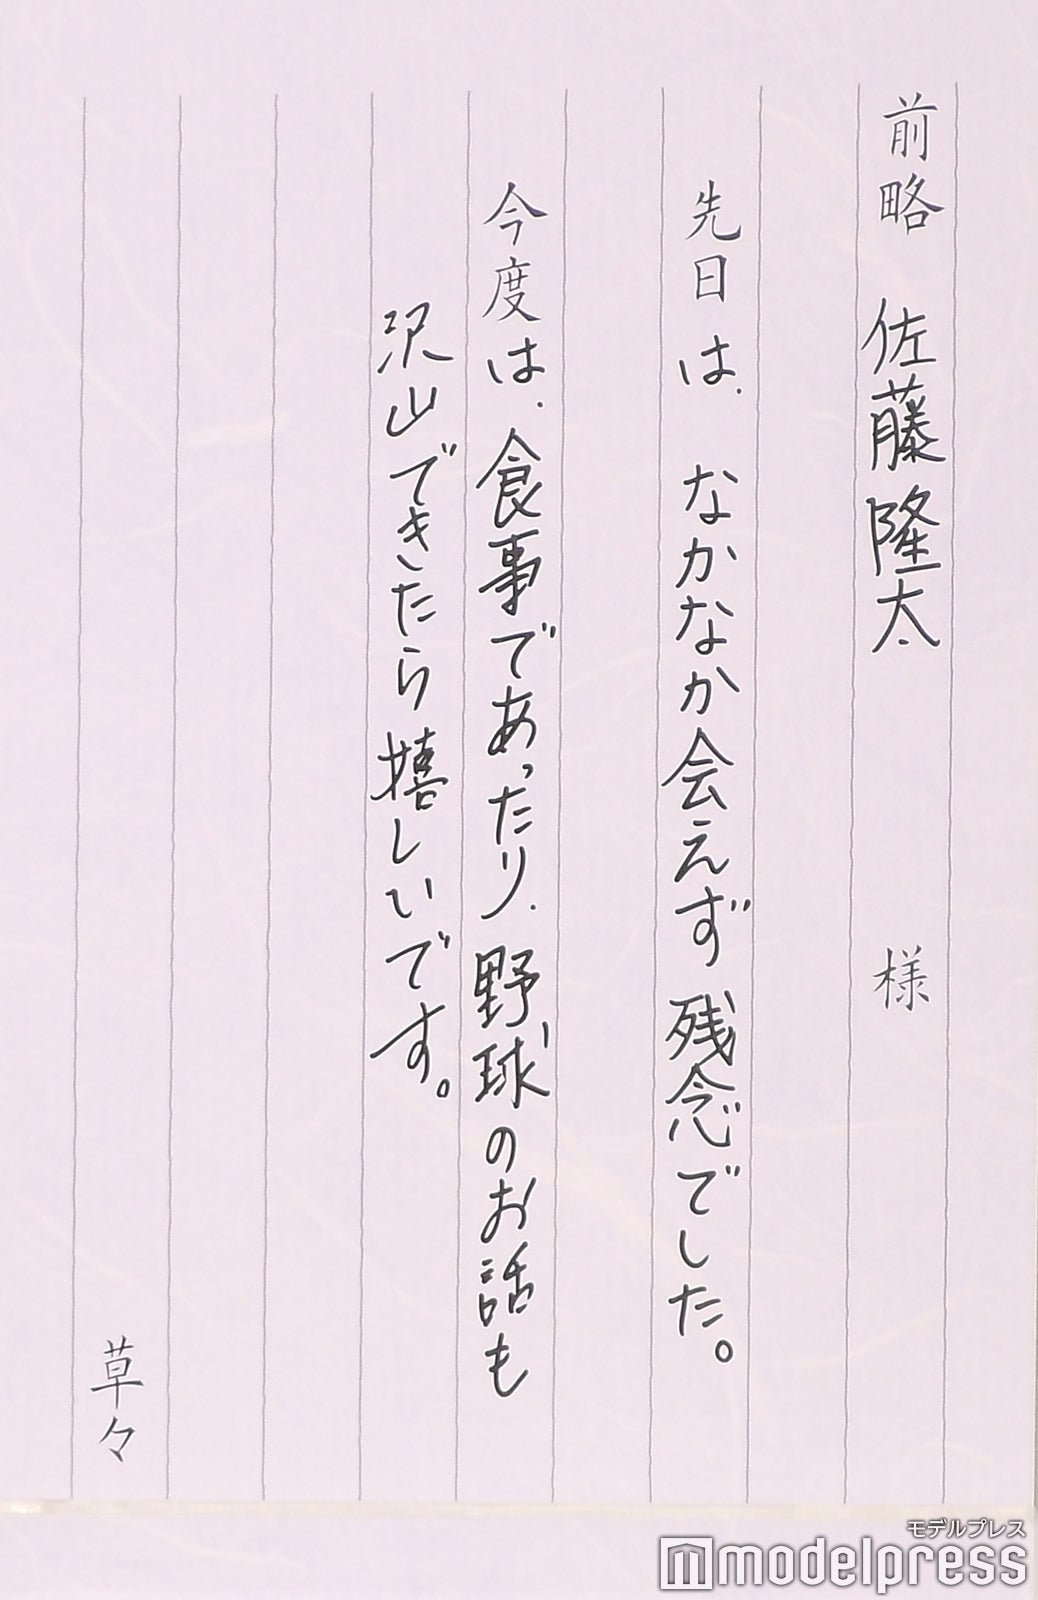 前略 佐藤隆太 様
先日は、なかなか会えず残念でした。
今度は、食事であったり、野球のお話も
沢山できたら嬉しいです。
草々
モデルプレス
modelpress